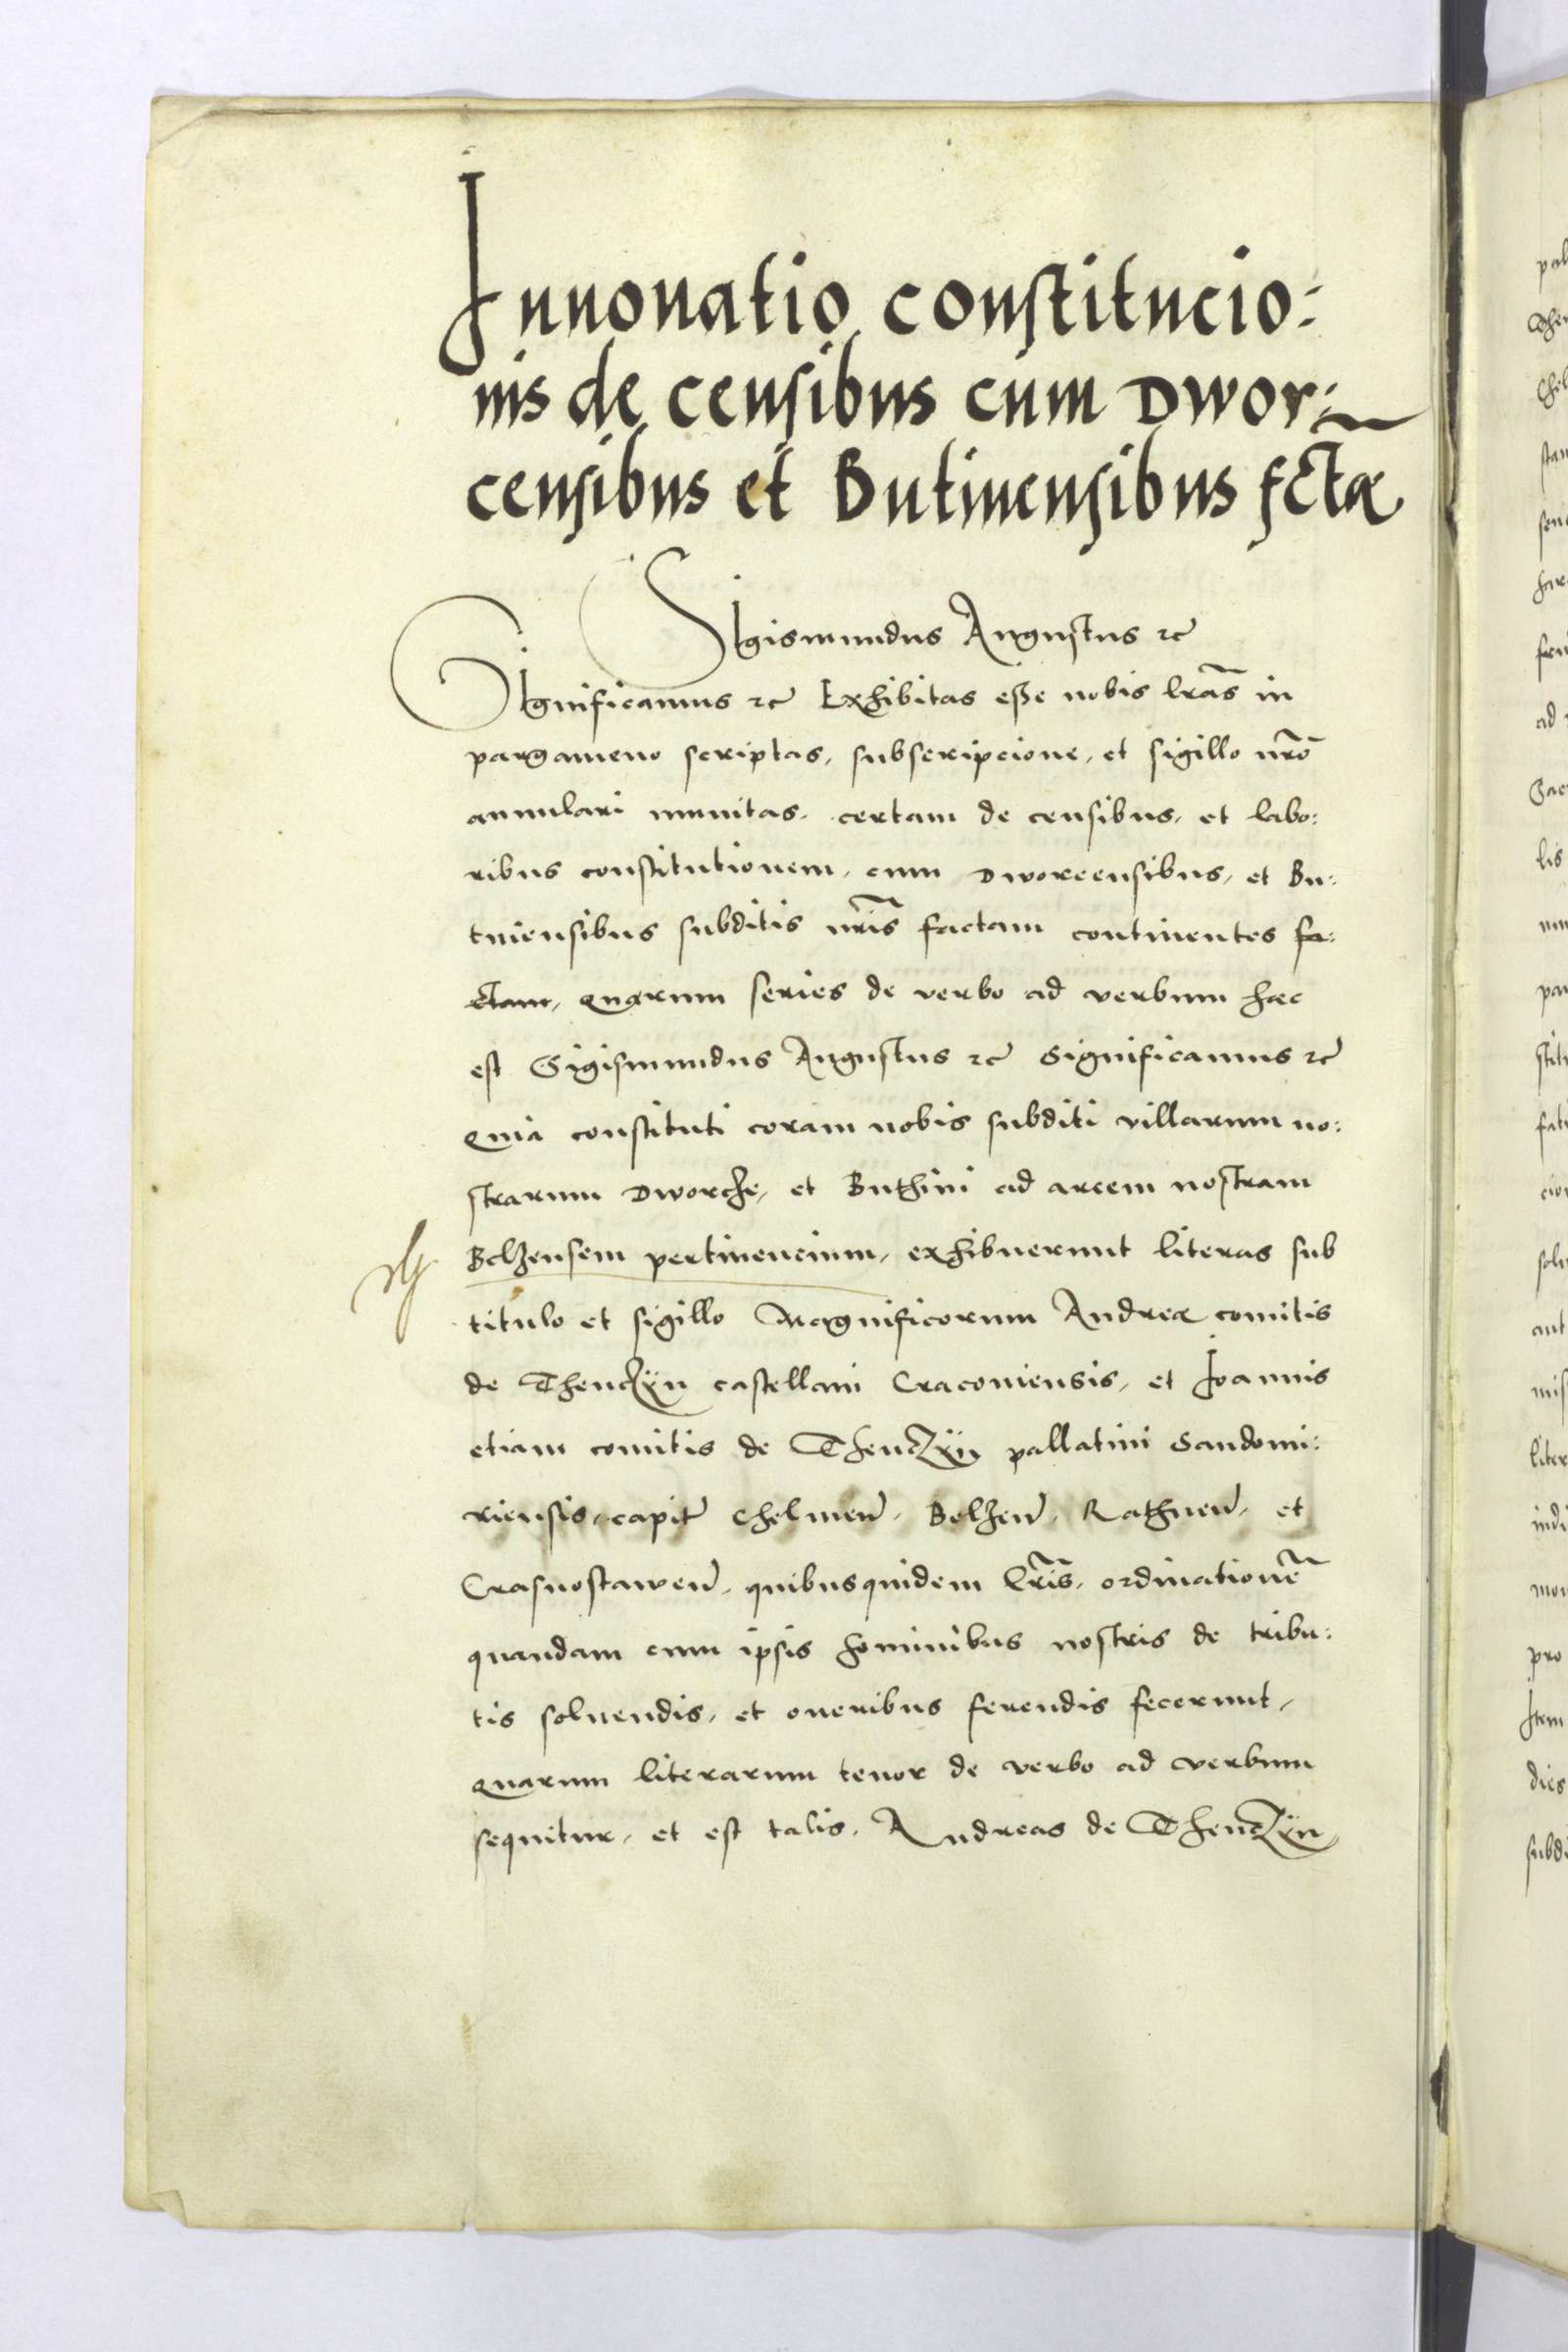 Innouatio constitucio:
nis de censibus cum Dwor:
censibus et Butinensibus fctæ
Sigismundus Augustus etc
Significamus etc Exhibitas eße nobis lras in
pargameno scriptas, subscripcione, et sigillo nro
annulari munitas, certam de censibus, et labo:
ribus constitutionem, cum Dworcensibus, et Bu:
tniensibus subditis nris factam continentes fa:
ctam, quarum series de verbo ad verbum hæc
est Sigismundus Augustus etc Significamus etc
Quia constituti coram nobis subditi villarum no:
strarum Dworcze, et Buthini ad arcem nostram
Belzensem pertinencium, exhibuerunt literas sub
titulo et sigillo Magnificorum Andreæ comitis
de Thenczÿn castellani Cracouiensis, et Joannis
etiam comitis de Thenczÿn pallatini Sandomi:
riensis, capit Chelmen, Belzen, Rathnen, et
Crasnostawen, quibusquidem lris, ordinatione
quandam cum ipsis hominibus nostris de tribu:
tis soluendis, et oneribus ferendis fecerunt,
quarum literarum tenor de verbo ad verbum
sequitur, et est talis. Andreas de Thenczÿn